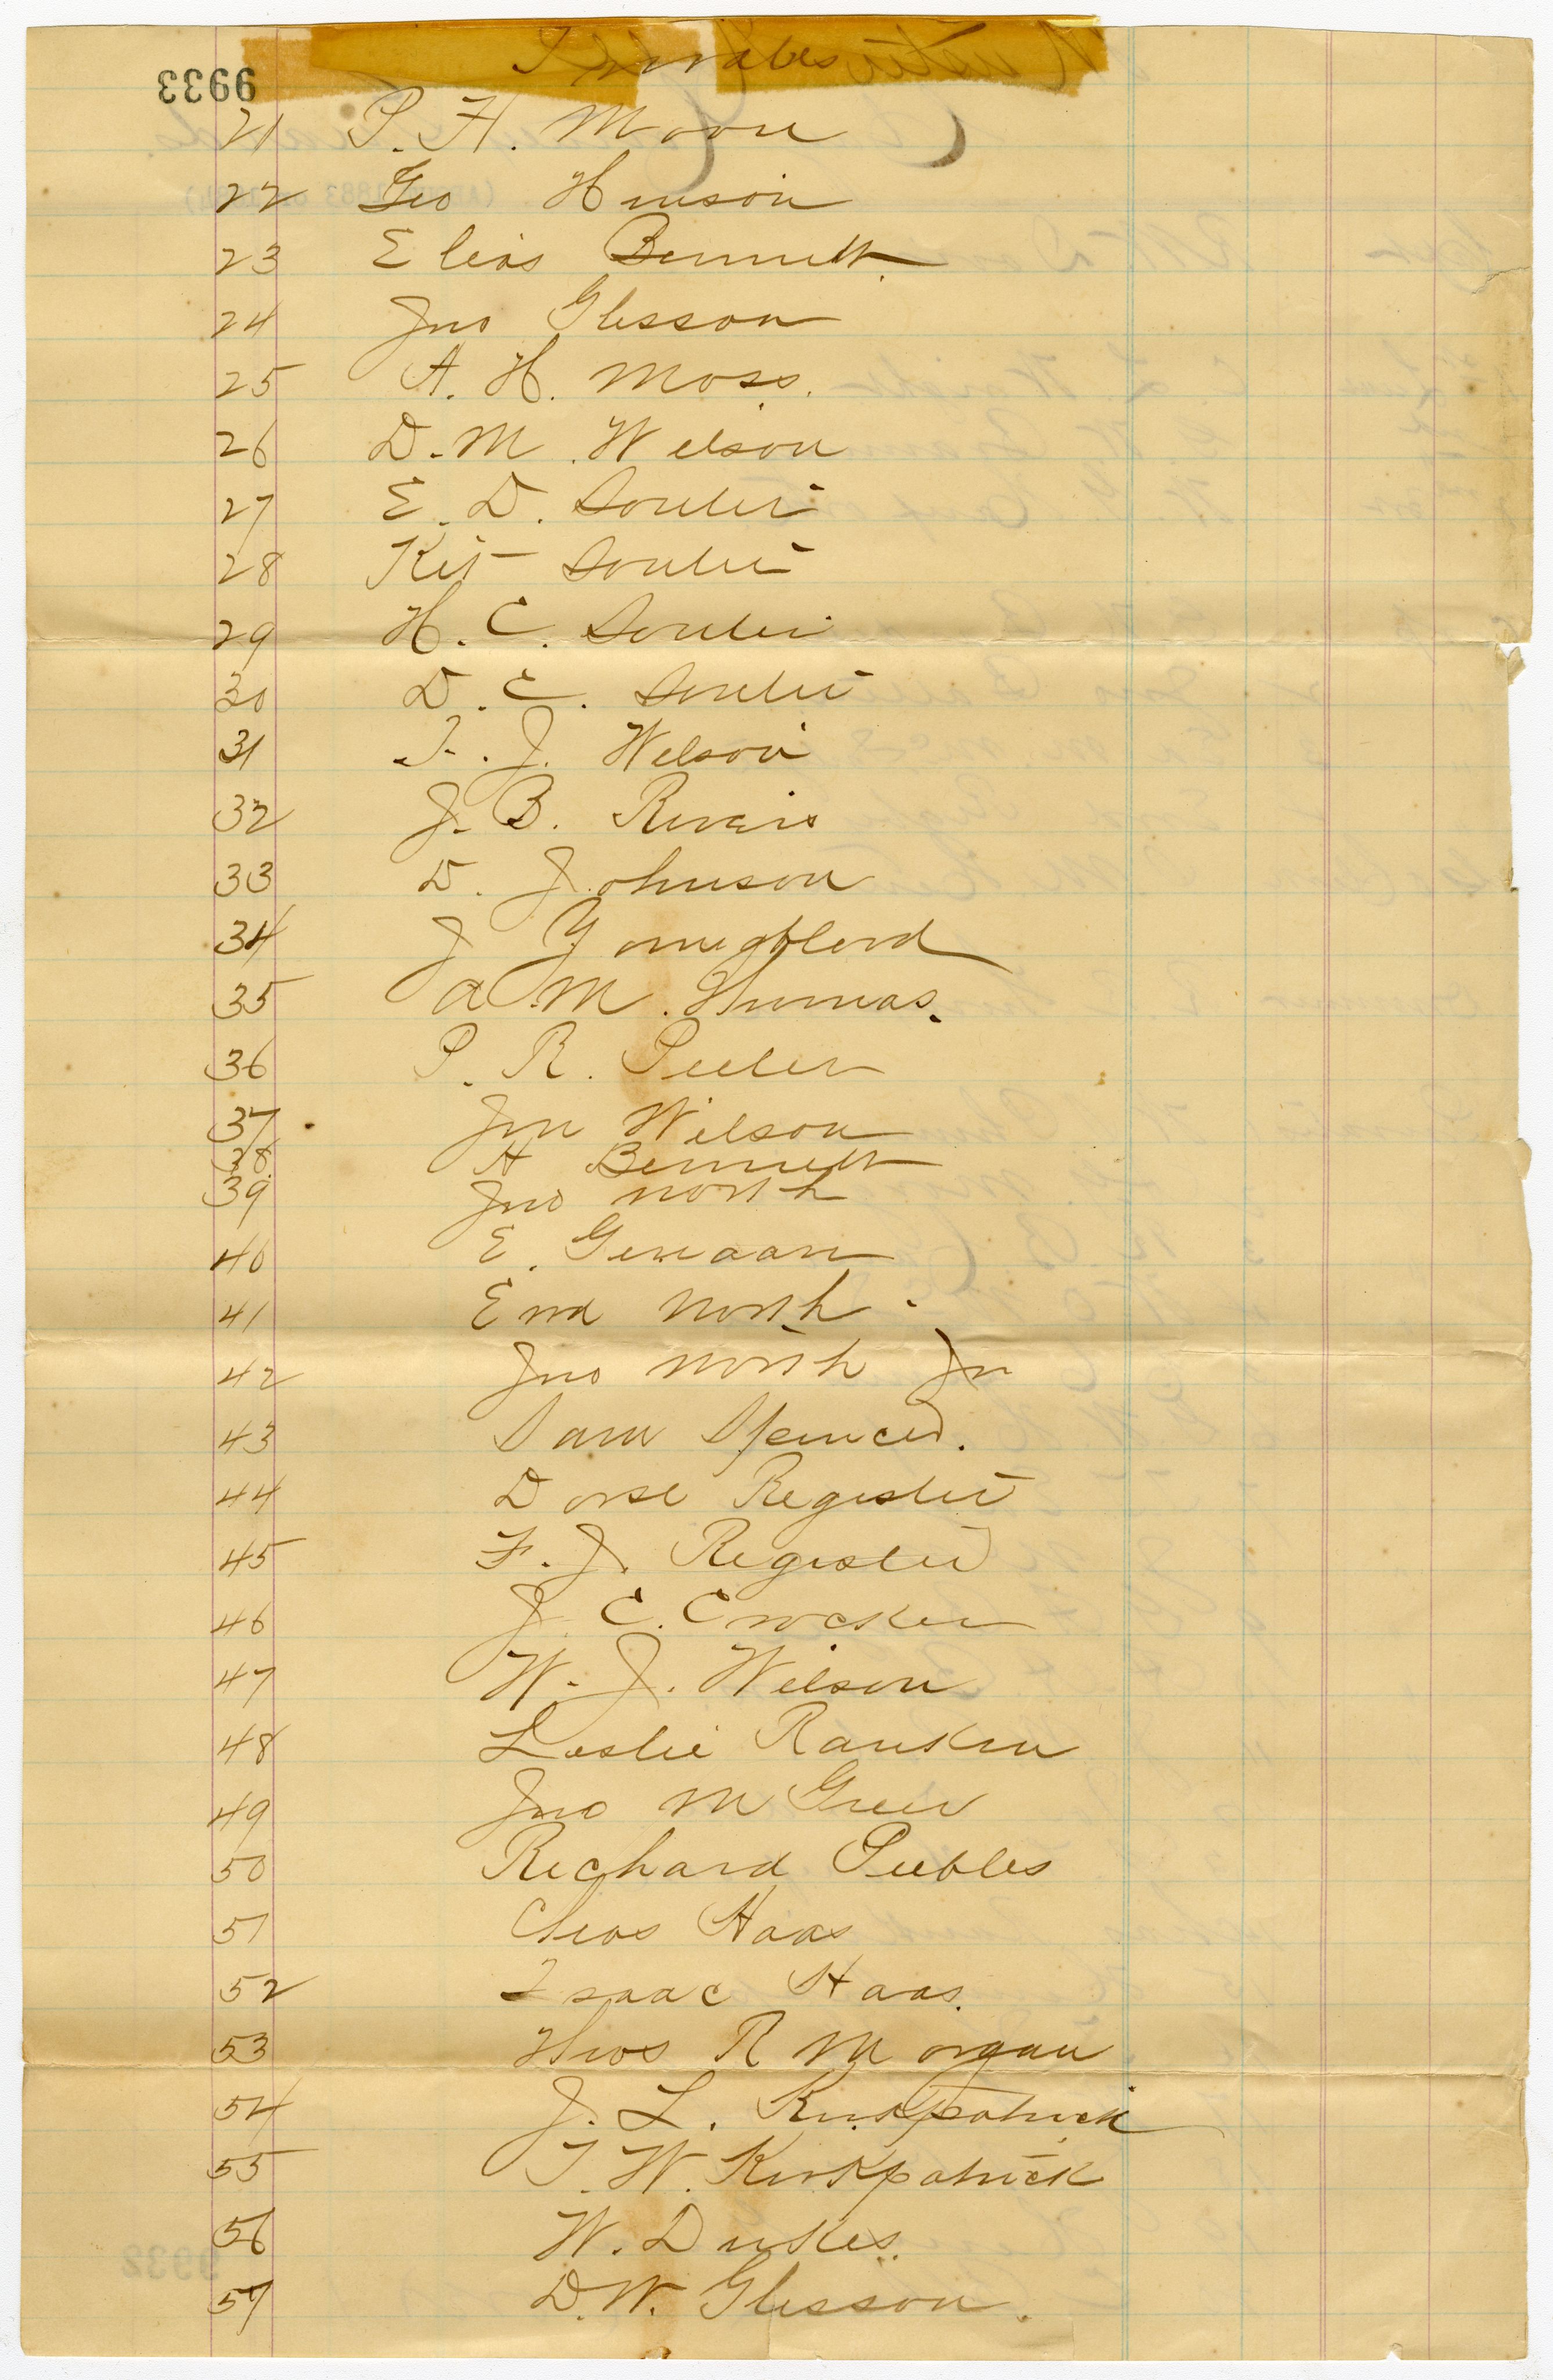 Privates
9933
21 P. H. Moore
22 Geo Hinson
23 Elias Bennett
24 Jno Glisson
25 A. H. Moss.
26 D. M. Wilson
27 E. D. Souter
28 Kit Souter
29 H. C. Souter
30 D. E. Souter
31 T. J. Wilson
32 J. B. Rivers
33 D. Johnson
34 J Youngblood
35 A M. Thomas.
36 P. R. Peeler
37 Jno Wilson
38 H Bennett
39 Jno North
40 E.
41 North
42 Jno North Jr
43 Sam Spencer.
44 Dorse Register
45 F. J. Register
46 J. E. Crocker
47 W. J. Wilson
48 Leslie Rankin
49 Jno M Greer
50 Richard Peebles
51 Chas Haas
52 Isaac Haas.
53 Thos R Morgan
54 J. L. Kirkpatrick
55 T. W. Kirkpatrick
56 W. Dukes.
57 D. W. Glisson.